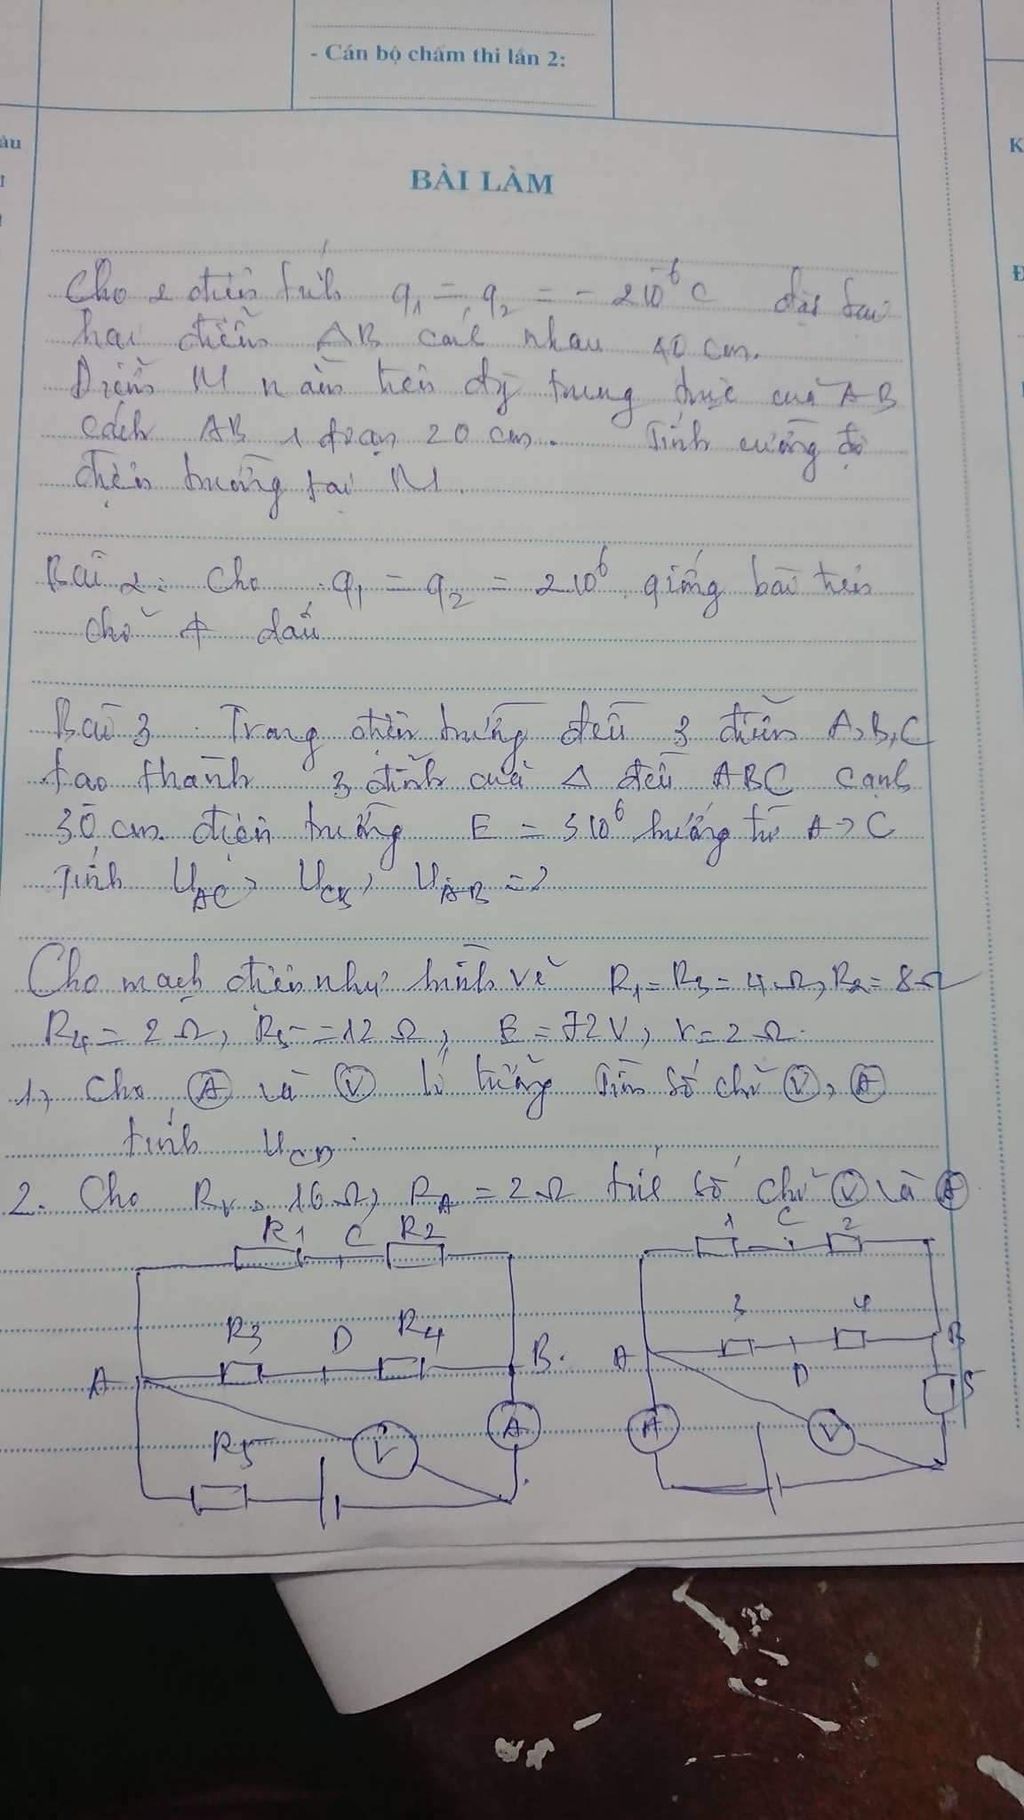 - Cán bộ chấm thi lần 2:
BÀI LÀM
Cho 2 điện tích q1 = q2 = - 2 10^-6 C đặt tại
hai điểm AB cách nhau 40 cm.
Điểm M nằm trên đg trung trực của AB
cách AB 1 đoạn 20 cm. Tính cường độ
điện trường tại M.
Bài 2: Cho q1 = q2 = 2 10^6 giống bài trên
chỗ + dấu
Bài 3: Trong điện trường đều 3 điểm A,B,C
tạo thành 3 đỉnh của Δ đều ABC cạnh
30 cm. điện trường E = 3 10^6 hướng từ A → C
Tính UAC, UCB, UAB = ?
Cho mạch điện như hình vẽ R1 = R3 = 4 Ω, R2 = 8 Ω
R4 = 2 Ω, R5 = 12 Ω, E = 72 V, r = 2 Ω.
1, Cho (A) và (V) lí tưởng Tìm số chỉ (V), (A)
tính UCD
2. Cho RV = 10 Ω, RA = 2 Ω số chỉ (V) và (A)
R1 C R2
R3 D R4
A B
A
V
R5
1 C 2
3 4
A D B
5
A V
K